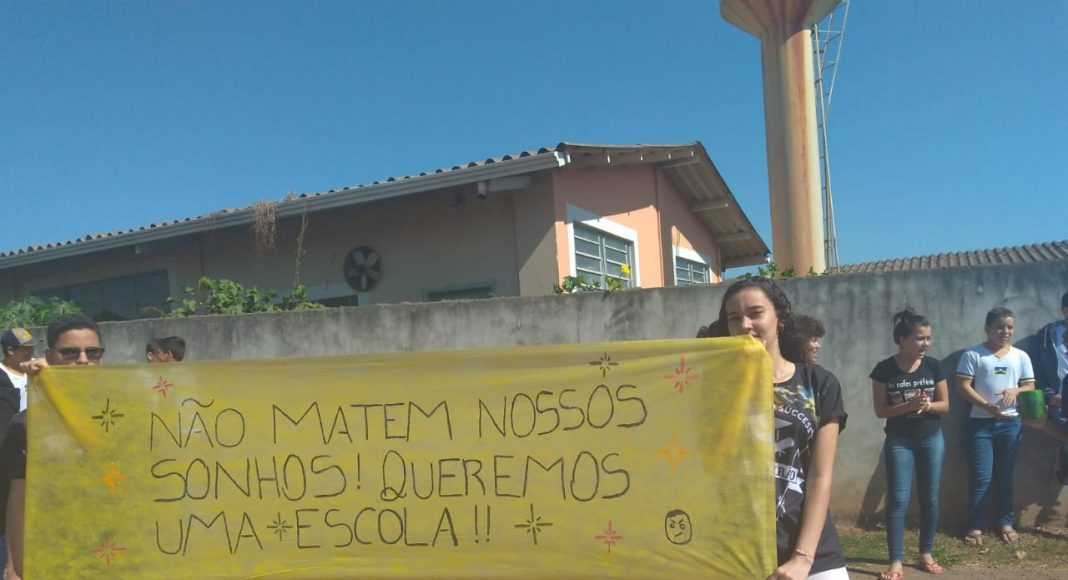 NÃO MATEM NOSSOS
SONHOS! QUEREMOS
UMA ESCOLA!!
SUCCESS